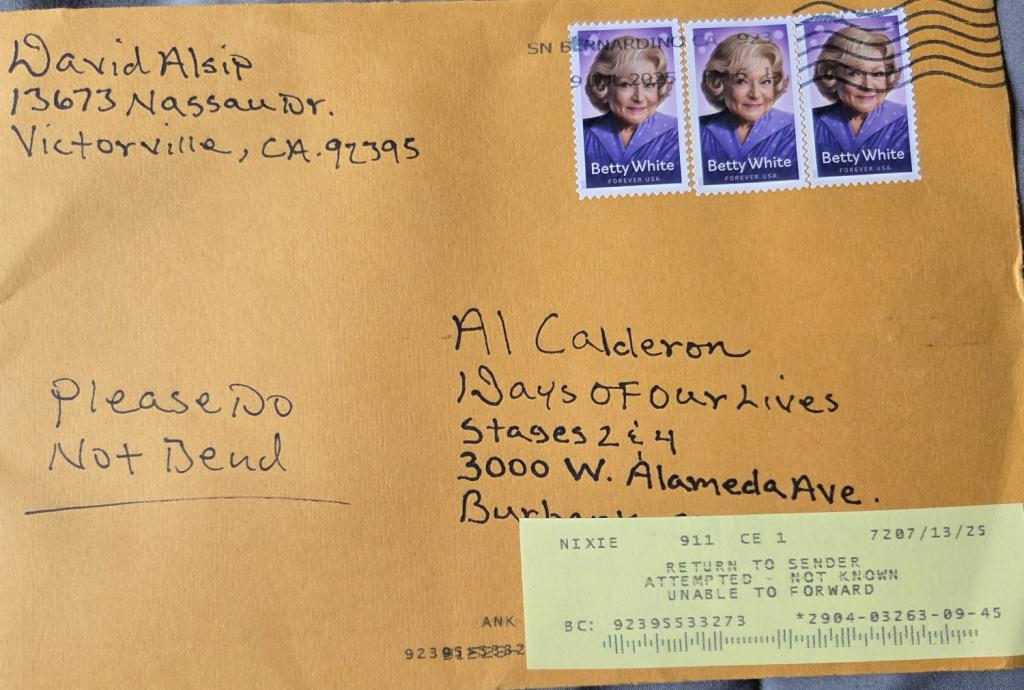 David Alsip
13673 Nassau Dr.
Victorville, CA. 92395
SN BERNARDINO CA 923
9 2025 PM
Betty White
FOREVER USA
Betty White
FOREVER USA
Betty White
FOREVER USA
Please Do
Not Bend
Al Calderon
Days OF Our Lives
Stages 2 & 4
3000 W. Alameda Ave.
NIXIE 911 CE 1 7207/13/25
RETURN TO SENDER
ATTEMPTED - NOT KNOWN
UNABLE TO FORWARD
ANK
BC: 92395533273 *2904-03263-09-45